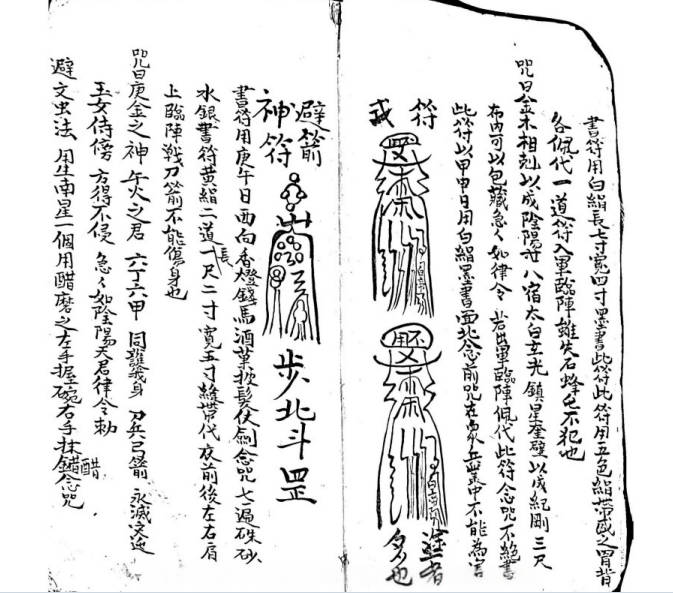 書符用白絹長七寸寬四寸墨書此符此符用五色絹帶盛之胃背
各佩代一道符入軍臨陣雄失石蜂毛不犯也
咒曰金木相剋以成陰陽 八宿太白玄光 鎮星奎壁以成紀剛 三尺
布內可以包藏急〻如律令 若出軍臨陣佩代此符念咒不絕書
此符以甲申日用白絹墨書面北念前咒在衆丘 中不能為害
符
式
者
多也
避箭
神符
步北斗罡
書符用庚午日西向香燈錢馬酒菓披髮仗劍念咒七遍硃砂
水銀書符黃絹二道長一尺二寸 寬五寸縫帶代衣前後左右肩
上臨陣戰刀箭不能傷身也
咒曰庚金之神 午火之君 六丁六甲 同護我身 刀兵弓箭 永滅
玉女侍傍 方得不侵 急〻如陰陽天君律令勅
避文虫法 用生南星一個用醋磨之左手握碗右手抹醋念咒